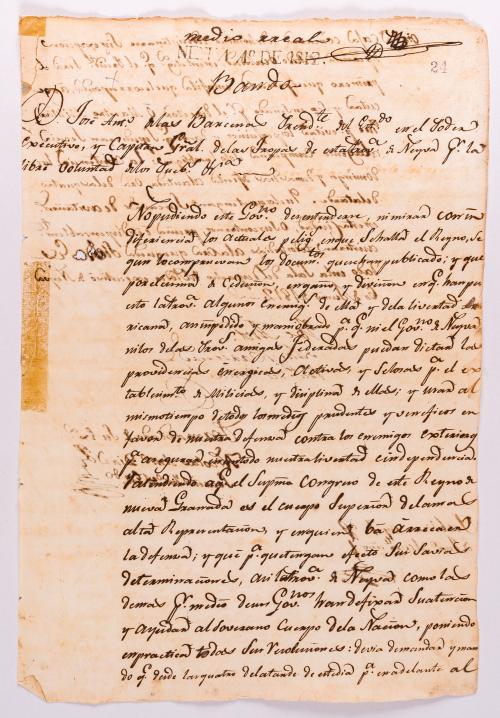 medio real
NEYVA 18 DE 1812
24
Bando
D. José Antº de las Barcena Tendte del Estdo en el Poder
Executivo, y Capitan Gral. de las Tropas de esta Prova de Neyva pr. la
libre voluntad de los Pueb.s Hª
No pudiendo este Govno desentenderse, ni mirar con in
diferencia los actuales pelig.s en que se halla el Reyno, se
gun lo compruevan los documtos que se han publicado; y que
por el crimen de Cedicion, engaño, y divicion en q.e han pu
esto la trova algunos enemig.s de ella y de la livertad Ame
ricana, an impedido y maniobrado pª q.e ni el Govno de Neyva
ni los de las Provs amigas Federadas puedan dictar las
providencias energicas, activas, y selosas pª el es
tablecimto de Milicias, y diciplina de ellas; y usar al
mismo tiempo de todos los medios prudentes y veneficos en
favor de nuestra defensa contra los enemigos exteriores
pª asegurar en todo nuestra livertad e independencia
y atendiendo aq.e el Supmo Congreso de este Reyno de
nueva Granada es el cuerpo Superior de la mas
alta Representacion, y en quien va
la defensa; y que pª que tengan efecto sus savias
determinaciones, asi la Prova de Neyva como las
demas pr. medio de sus Govnos han de fixar su atencion
y ayudar al Soverano Cuerpo de la Nacion, poniendo
en practica todas sus resoluciones: devia de mandar y man
do q.e desde las quatro de la tarde de este dia pª en adelante al